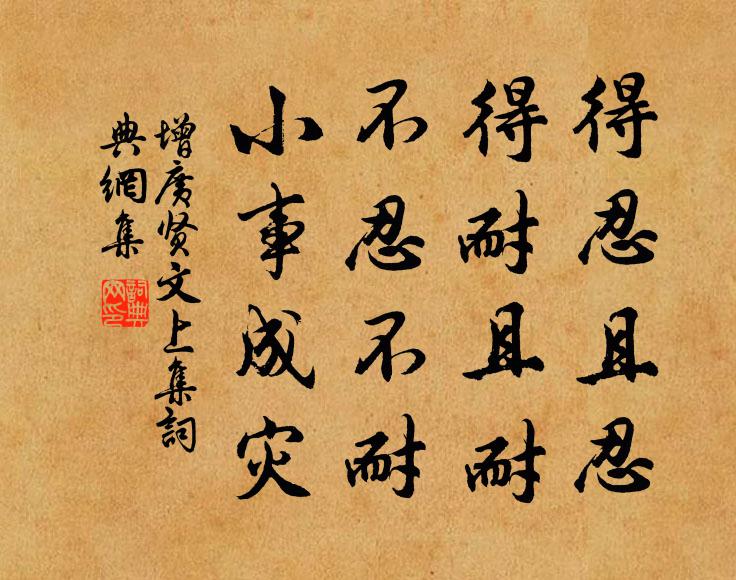 得忍且忍
得耐且耐
不忍不耐
小事成灾
增廣贤文上集詞
典網集
詞典
网印